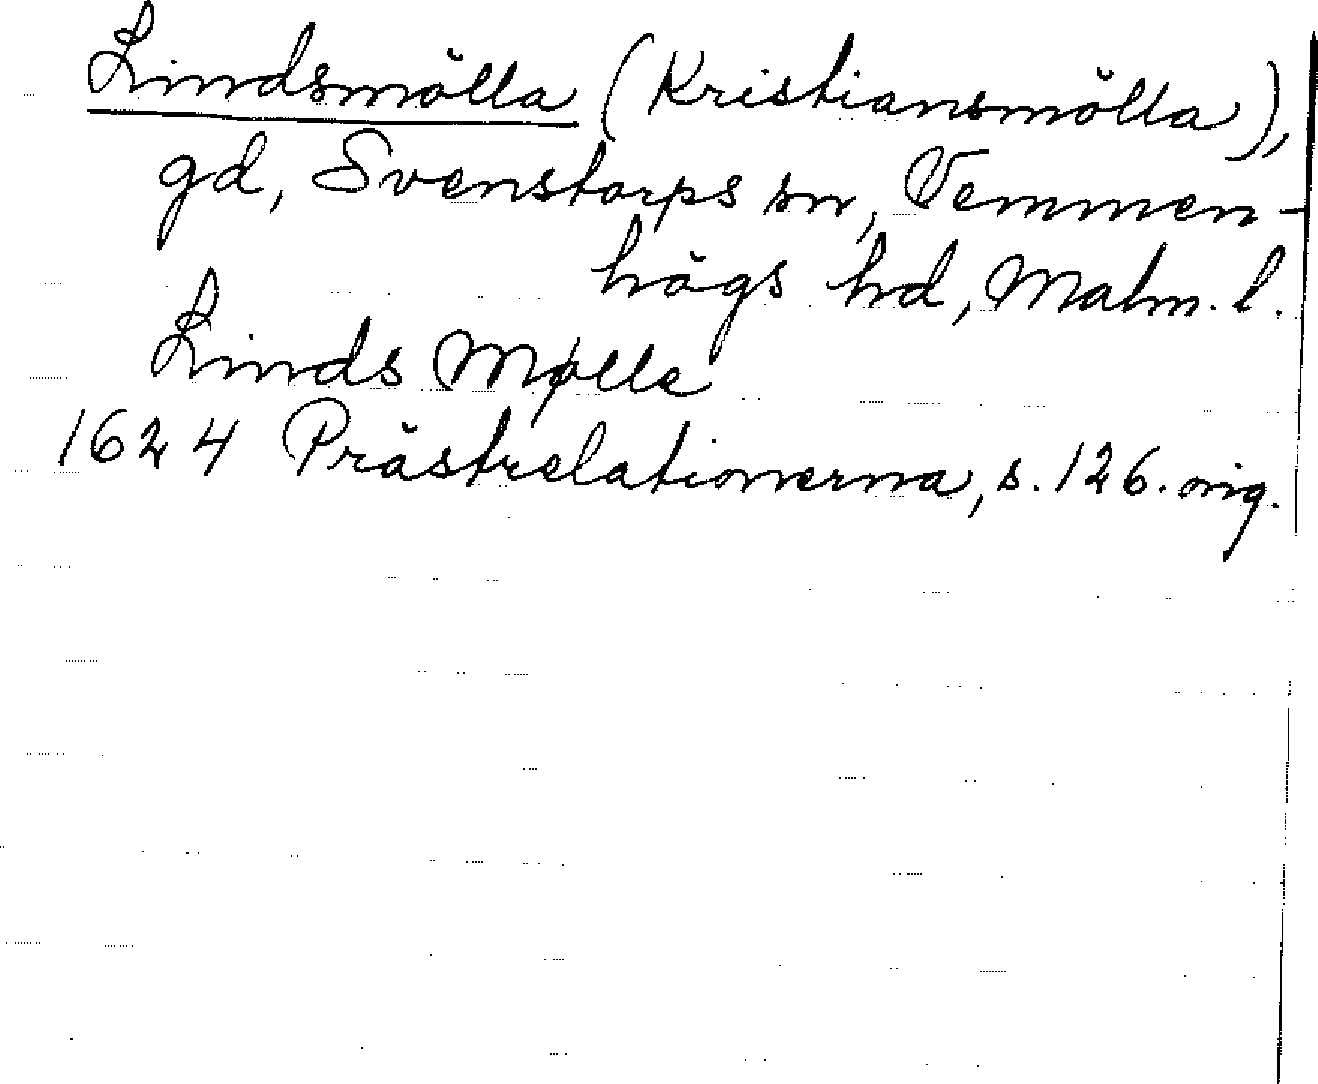 Lindsmölla (Kristiansmölla),
gd, Svenstorps sn, Vemmen-
högs hd, Malm. l.
Linds Mølle
1624 Prästrelationerna, s. 126. orig.